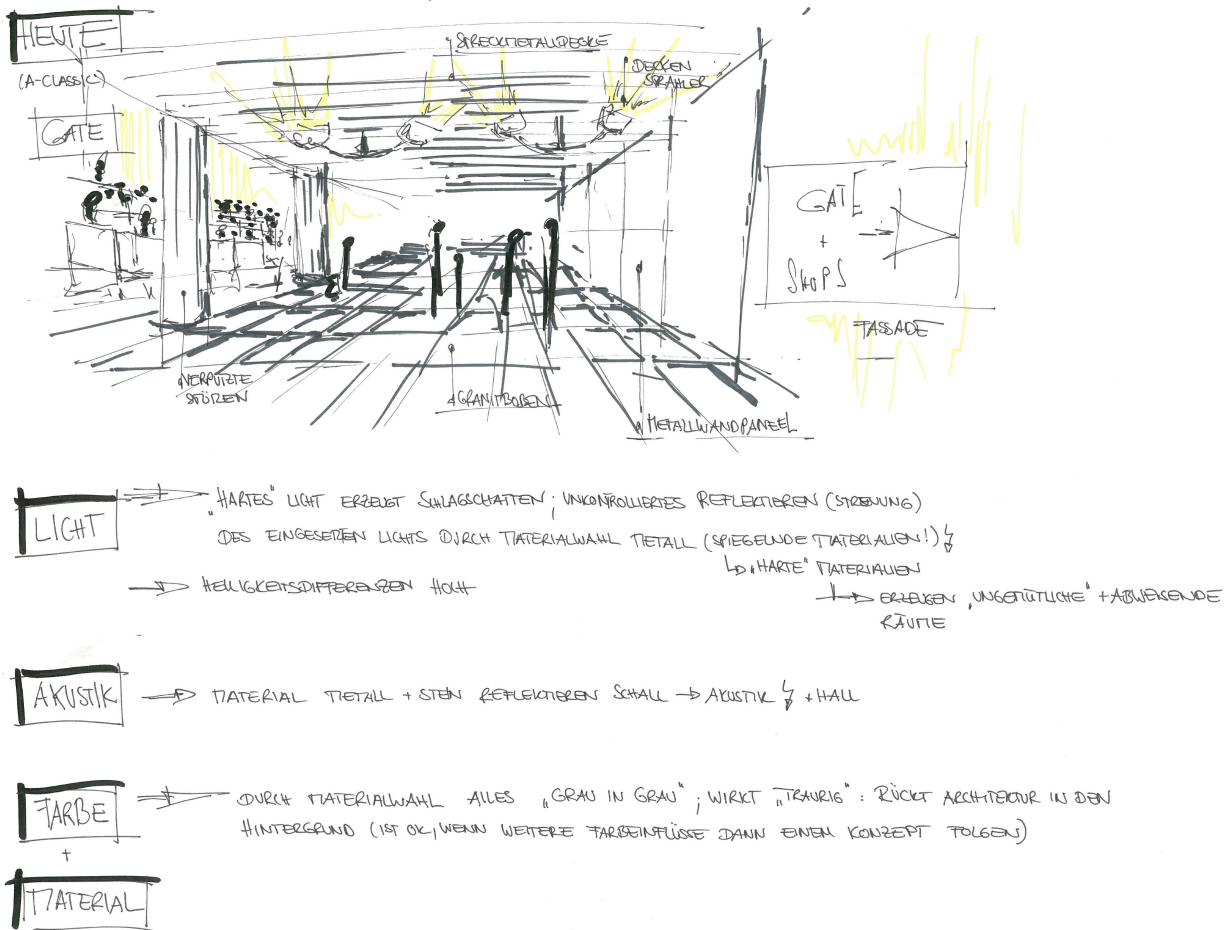 HEUTE
(A-CLASSIC)
GATE
STRECKMETALLDECKE
DECKEN
STRAHLER
GATE
+
SHOPS
FASSADE
VERPUTZTE
STÜREN
GRANITBODEN
METALLWANDPANEEL
LICHT
"HARTES" LICHT ERZEUGT SCHLAGSCHATTEN; UNKONTROLLIERTES REFLEKTIEREN (STREUUNG)
DES EINGESETZTEN LICHTS DURCH MATERIALWAHL METALL (SPIEGELNDE MATERIALIEN!)
"HARTE" MATERIALIEN
ERZEUGEN „UNGEMÜTLICHE" + ABWEISENDE
RÄUME
HELLIGKEITSDIFFERENZEN HOCH
AKUSTIK
MATERIAL METALL + STEIN REFLEKTIEREN SCHALL → AKUSTIK + HALL
FARBE
+
MATERIAL
DURCH MATERIALWAHL ALLES „GRAU IN GRAU"; WIRKT „TRAURIG": RÜCKT ARCHITEKTUR IN DEN
HINTERGRUND (IST OK, WENN WEITERE FARBEINFLÜSSE DANN EINEM KONZEPT FOLGEN)